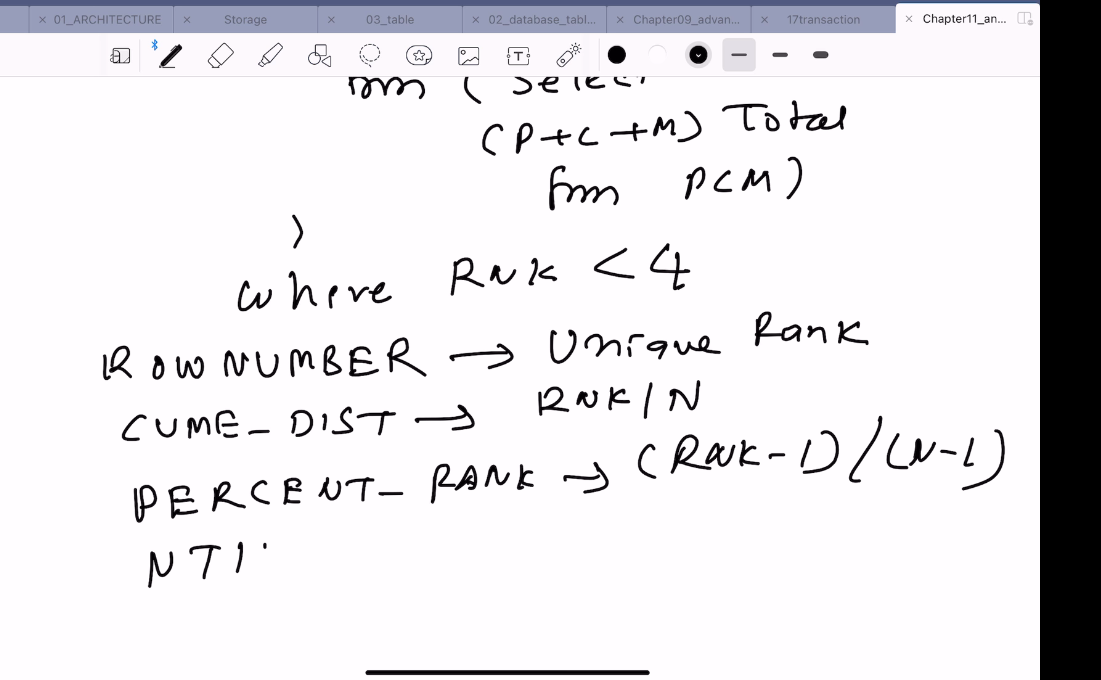 01_ARCHITECTURE Storage 03_table 02_database_tabl... Chapter09_advan... 17transaction Chapter11_an...
from ( Select
(P+C+M) Total
from PCM)
)
where RNK < 4
ROWNUMBER → Unique Rank
CUME_DIST → RNK/N
PERCENT_RANK → (RNK-1)/(N-1)
NTI